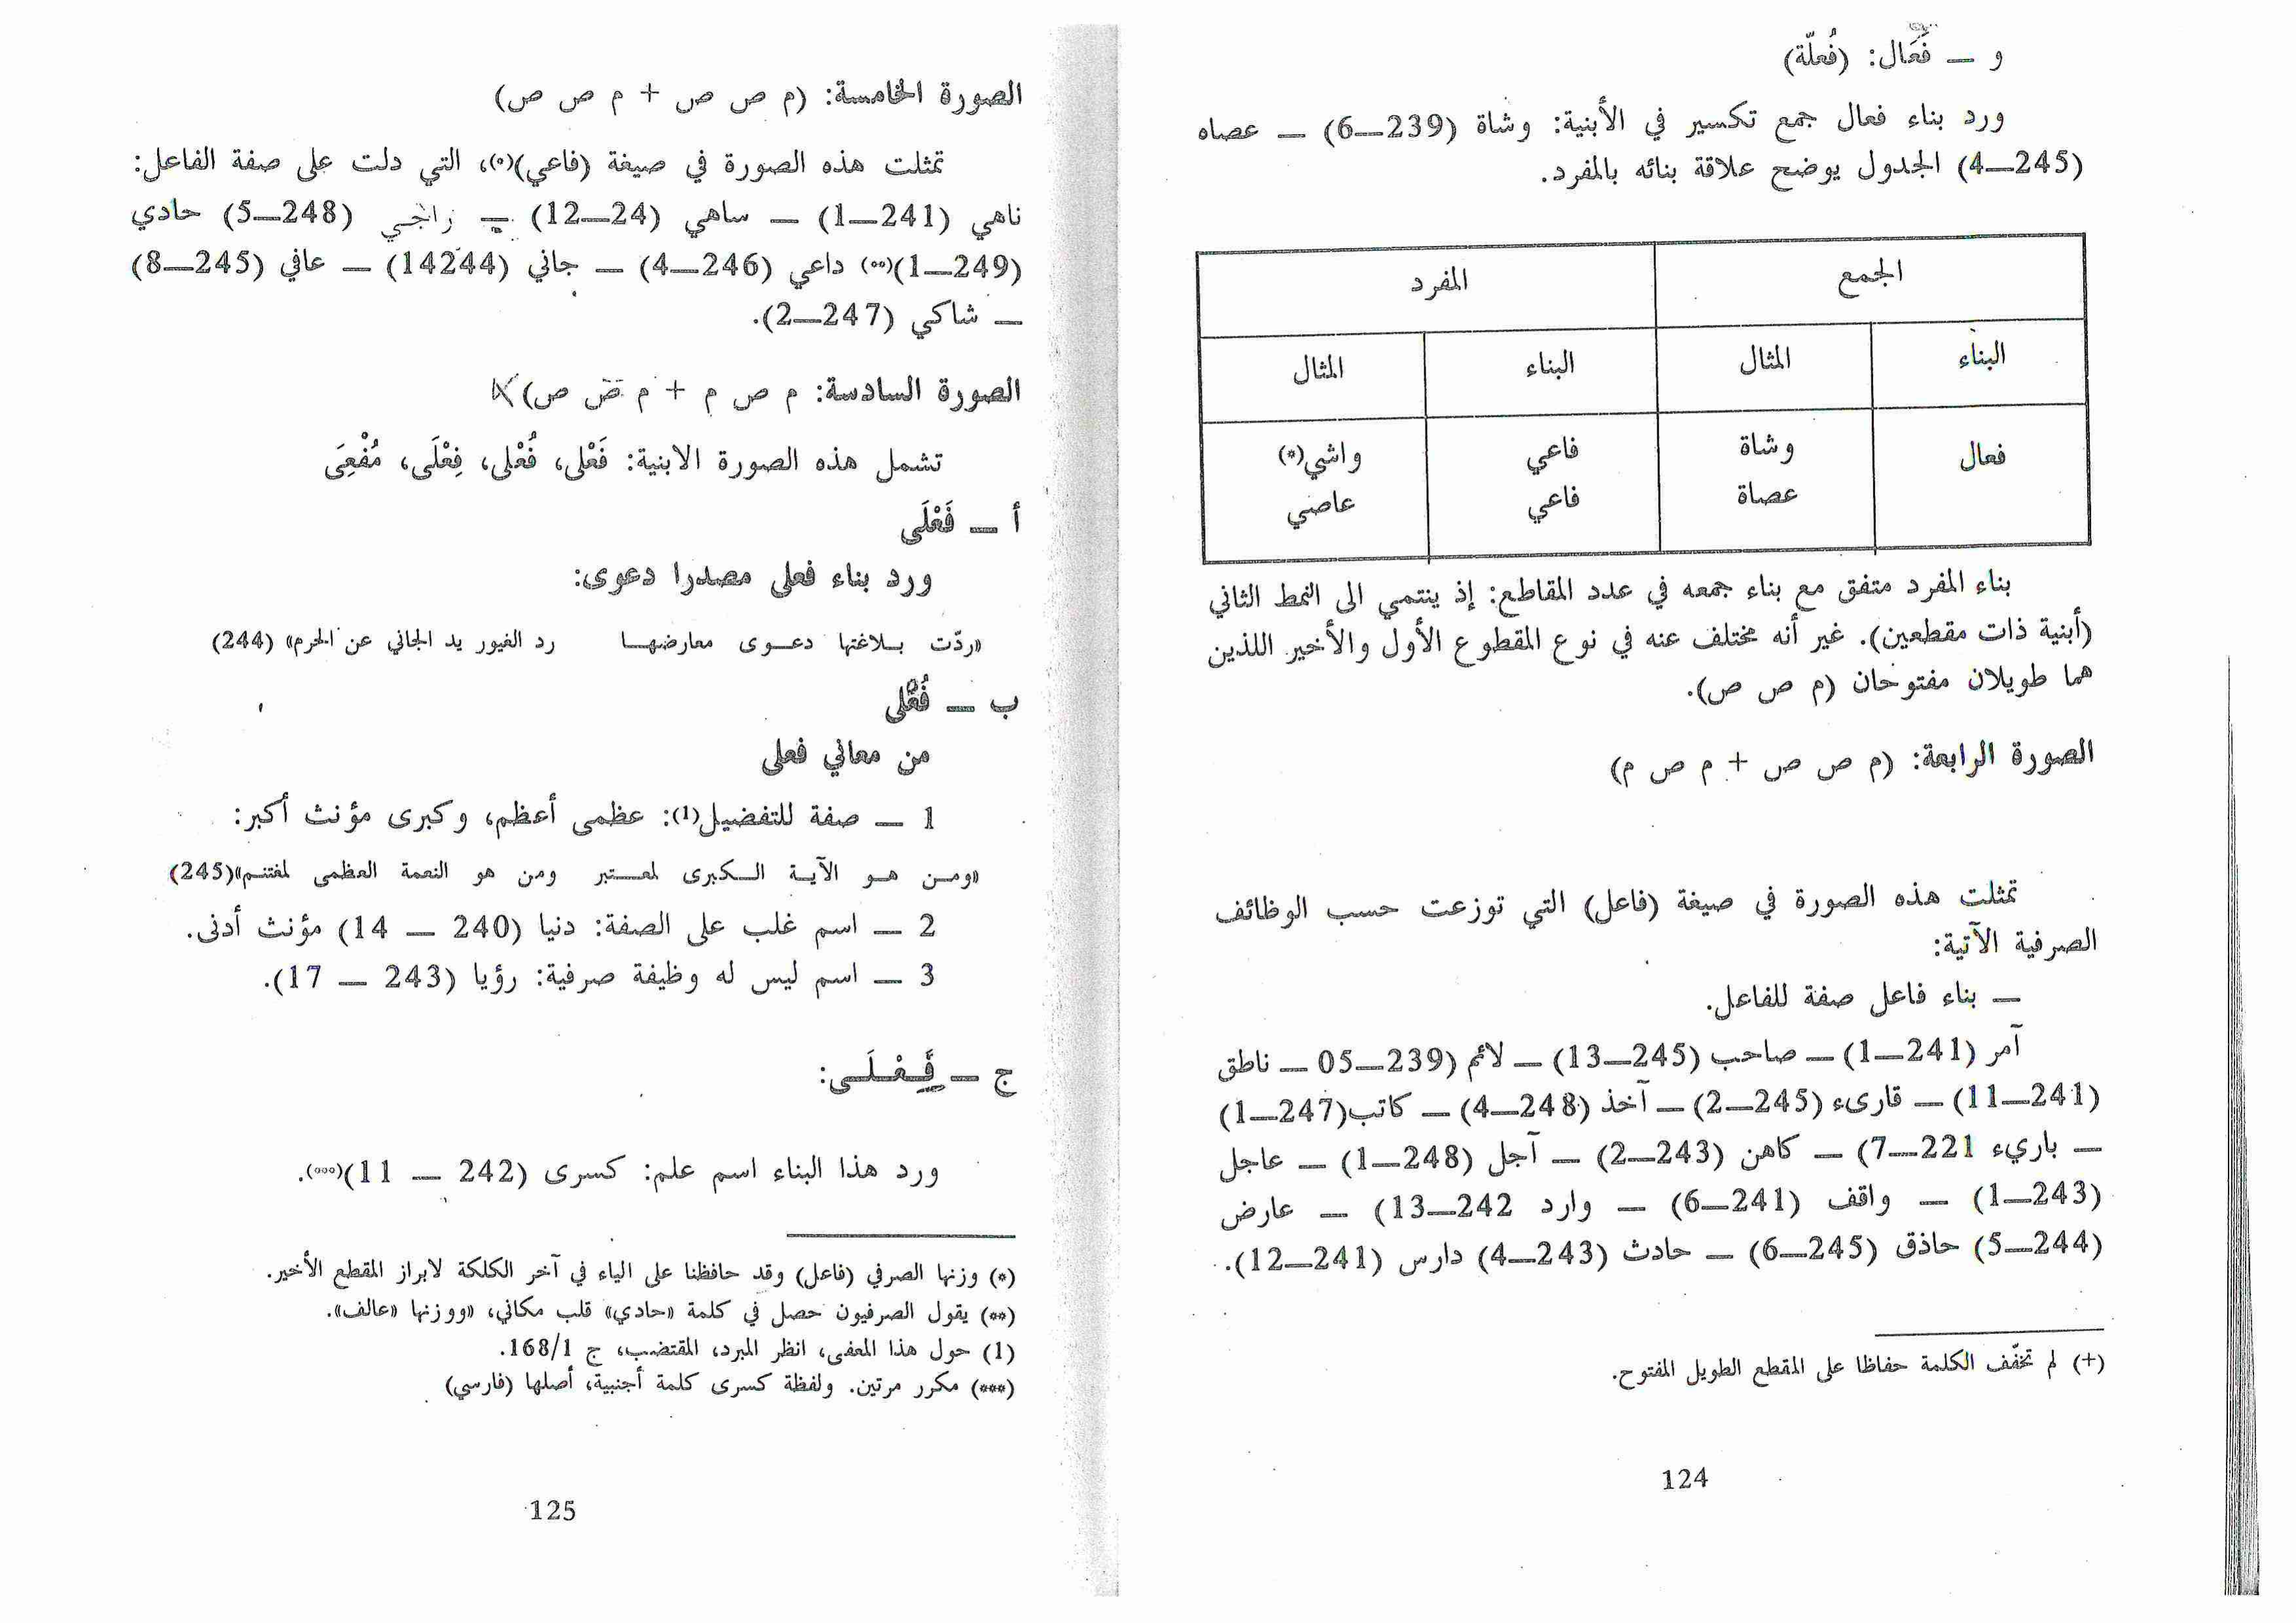 و — فُعَال: (فُعلّة)
ورد بناء فعال جمع تكسير في الأبنية: وشاة (239—6) — عصاه
(245—4) الجدول يوضح علاقة بنائه بالمفرد.
الجمع المفرد
البناء المثال البناء المثال
فعال وشاة فاعي واشي(*)
عصاة فاعي عاصي
بناء المفرد متفق مع بناء جمعه في عدد المقاطع: إذ ينتمي الى النمط الثاني
(أبنية ذات مقطعين). غير أنه مختلف عنه في نوع المقطوع الأول والأخير اللذين
هما طويلان مفتوحان (م ص ص).
الصورة الرابعة: (م ص ص + م ص م)
تمثلت هذه الصورة في صيغة (فاعل) التي توزعت حسب الوظائف
الصرفية الآتية:
— بناء فاعل صفة للفاعل.
آمر (241—1) — صاحب (245—13) — لائم (239—05 — ناطق
(241—11) — قارىء (245—2) — آخذ (248—4) — كاتب(247—1)
— باريء 221—7) — كاهن (243—2) — آجل (248—1) — عاجل
(243—1) — واقف (241—6) — وارد 242—13) — عارض
(244—5) حاذق (245—6) — حادث (243—4) دارس (241—12).
(+) لم تخفّف الكلمة حفاظا على المقطع الطويل المفتوح.
124
الصورة الخامسة: (م ص ص + م ص ص)
تمثلت هذه الصورة في صيغة (فاعي)(*)، التي دلت على صفة الفاعل:
ناهي (241—1) — ساهي (24—12) — راجي (248—5) حادي
(249—1)(**) داعي (246—4) — جاني (14244) — عافي (245—8)
— شاكي (247—2).
الصورة السادسة: م ص م + م ص ص)
تشمل هذه الصورة الابنية: فَعْلى، فُعْلى، فِعْلَى، مُفْعِىَ
أ — فَعْلَى
ورد بناء فعلى مصدرا دعوى:
«ردّت بـلاغتها دعـوى معارضهـا رد الغيور يد الجاني عن الحرم» (244)
ب — فُعْلى
من معاني فعلى
1 — صفة للتفضيل(1): عظمى أعظم، وكبرى مؤنث أكبر:
«ومـن هـو الآيـة الـكبرى لمعـتبر ومن هو النعمة العظمى لمغتنم»(245)
2 — اسم غلب على الصفة: دنيا (240 — 14) مؤنث أدنى.
3 — اسم ليس له وظيفة صرفية: رؤيا (243 — 17).
ج — فِـعْـلَـى:
ورد هذا البناء اسم علم: كسرى (242 — 11)(***).
(*) وزنها الصرفي (فاعل) وقد حافظنا على الياء في آخر الكلكة لابراز المقطع الأخير.
(**) يقول الصرفيون حصل في كلمة «حادي» قلب مكاني، «ووزنها «عالف».
(1) حول هذا المعفى، انظر المبرد، المقتضب، ج 168/1.
(***) مكرر مرتين. ولفظة كسرى كلمة أجنبية، أصلها (فارسي)
125